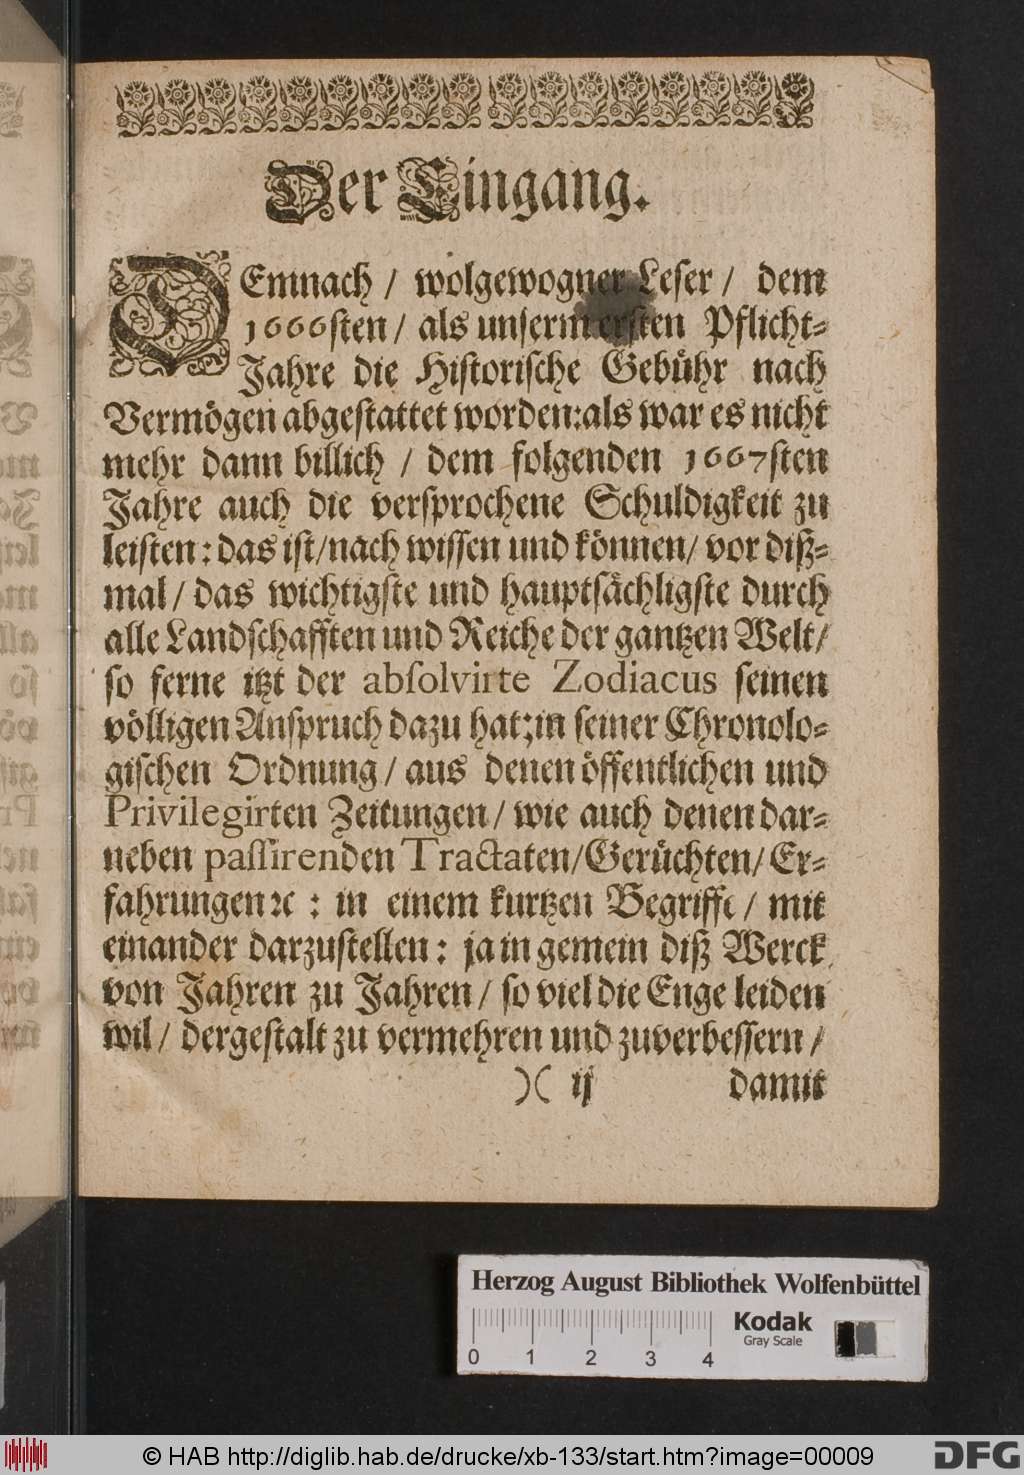 Der Eingang.
DEmnach / wolgewogner Leser / dem
1666sten / als unserm ersten Pflicht-
Jahre die Historische Gebühr nach
Vermögen abgestattet worden: als war es nicht
mehr dann billich / dem folgenden 1667sten
Jahre auch die versprochene Schuldigkeit zu
leisten: das ist / nach wissen und können / vor diß-
mal / das wichtigste und hauptsächligste durch
alle Landschafften und Reiche der gantzen Welt /
so ferne itzt der absolvirte Zodiacus seinen
völligen Anspruch dazu hat; in seiner Chronolo-
gischen Ordnung / aus denen öffentlichen und
Privilegirten Zeitungen / wie auch denen dar-
neben passirenden Tractaten / Gerüchten / Er-
fahrungen ꝛc : in einem kurtzen Begriffe / mit
einander darzustellen: ja in gemein diß Werck
von Jahren zu Jahren / so viel die Enge leiden
wil / dergestalt zu vermehren und zuverbessern /
)( ij damit
Herzog August Bibliothek Wolfenbüttel
Kodak
Gray Scale
0 1 2 3 4
© HAB http://diglib.hab.de/drucke/xb-133/start.htm?image=00009
DFG